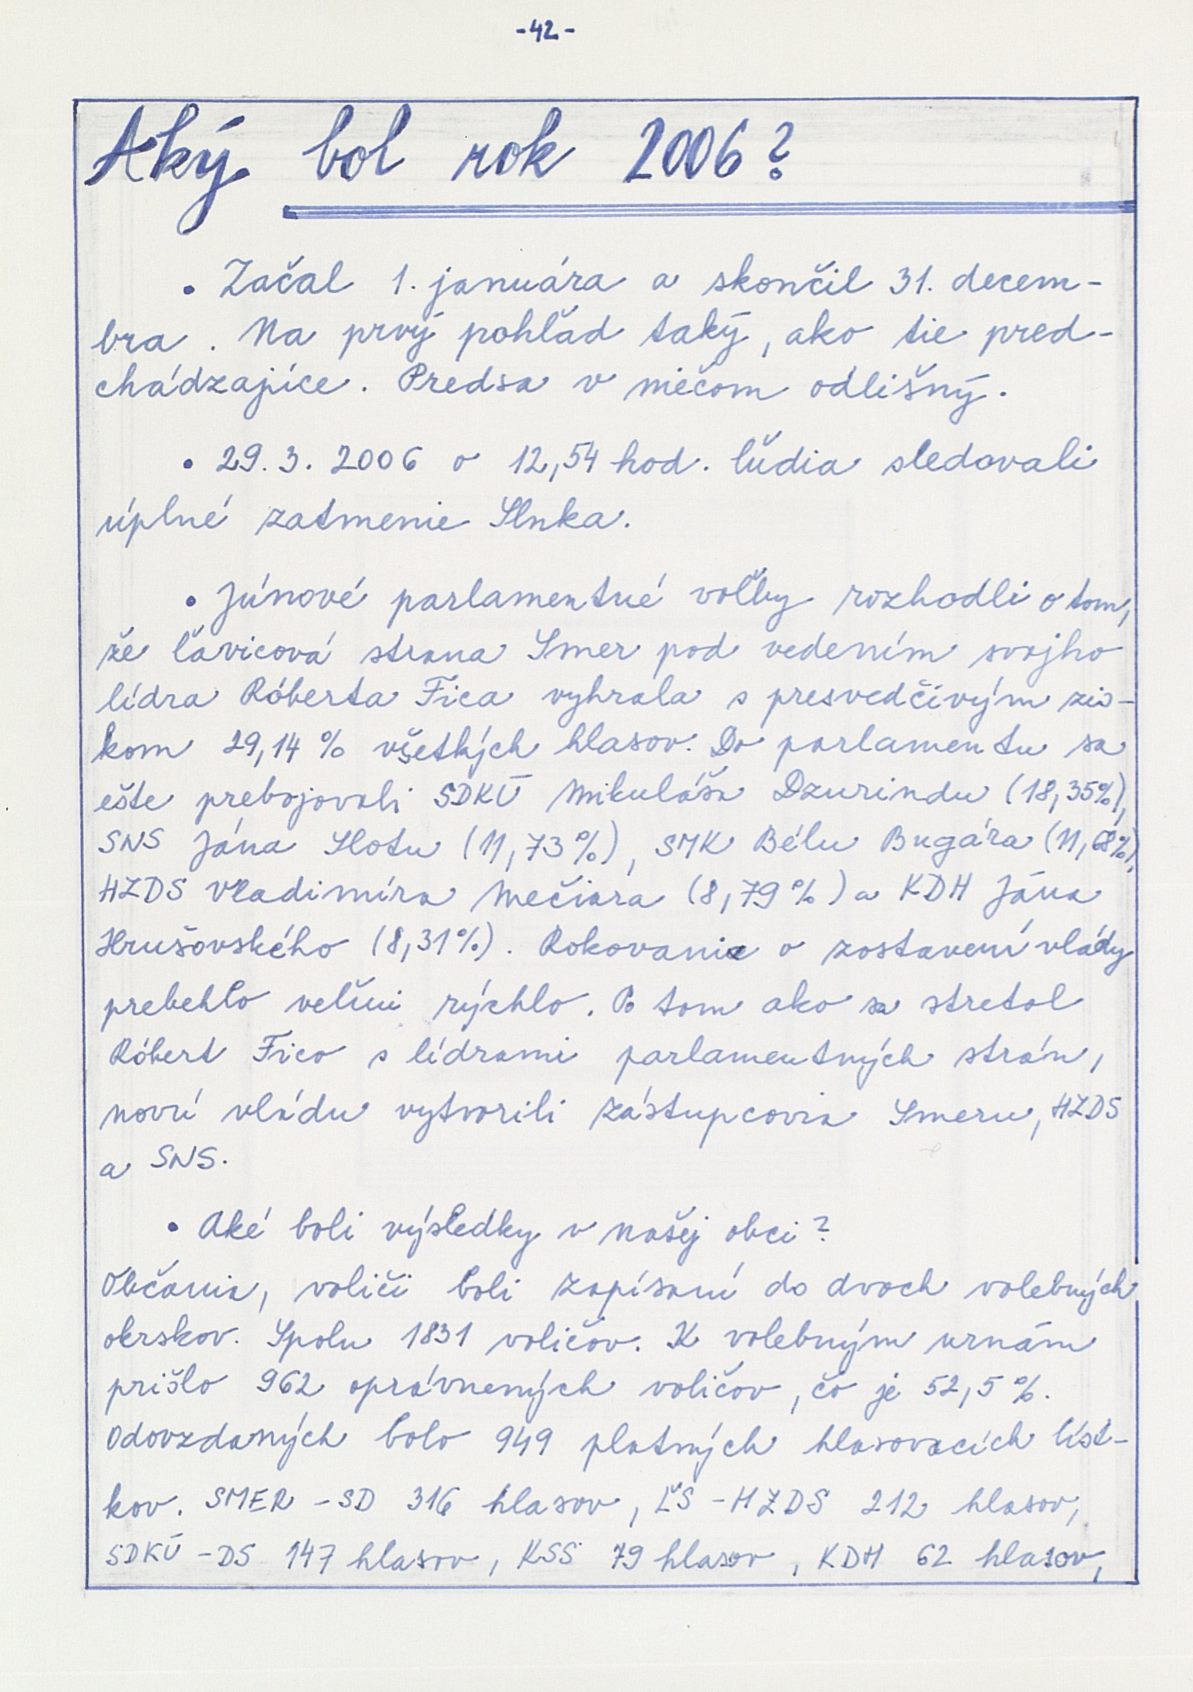 -42-
Aký bol rok 2006?
• Začal 1. januára a skončil 31. decem-
bra. Na prvý pohľad taký, ako tie pred-
chádzajúce. Predsa v niečom odlišný.
• 29.3.2006 o 12,54 hod. ľudia sledovali
úplné zatmenie Slnka.
• Júnové parlamentné voľby rozhodli o tom,
že ľavicová strana Smer pod vedením svojho
lídra Róberta Fica vyhrala s presvedčivým zis-
kom 29,14 % všetkých hlasov. Do parlamentu sa
ešte prebojovali SDKÚ Mikuláša Dzurindu (18,35%),
SNS Jána Slotu (11,73%), SMK Bélu Bugára (11,68%),
HZDS Vladimíra Mečiara (8,79%) a KDH Jána
Hrušovského (8,31%). Rokovanie o zostavení vlády
prebehlo veľmi rýchlo. Po tom ako sa stretol
Róbert Fico s lídrami parlamentných strán,
novú vládu vytvorili zástupcovia Smeru, HZDS
a SNS.
• Aké boli výsledky v našej obci?
Občania, voliči boli zapísaní do dvoch volebných
okrskov. Spolu 1831 voličov. K volebným urnám
prišlo 962 oprávnených voličov, čo je 52,5%.
Odovzdaných bolo 949 platných hlasovacích líst-
kov. SMER-SD 316 hlasov, ĽS-HZDS 212 hlasov,
SDKÚ-DS 147 hlasov, KSS 79 hlasov, KDH 62 hlasov,